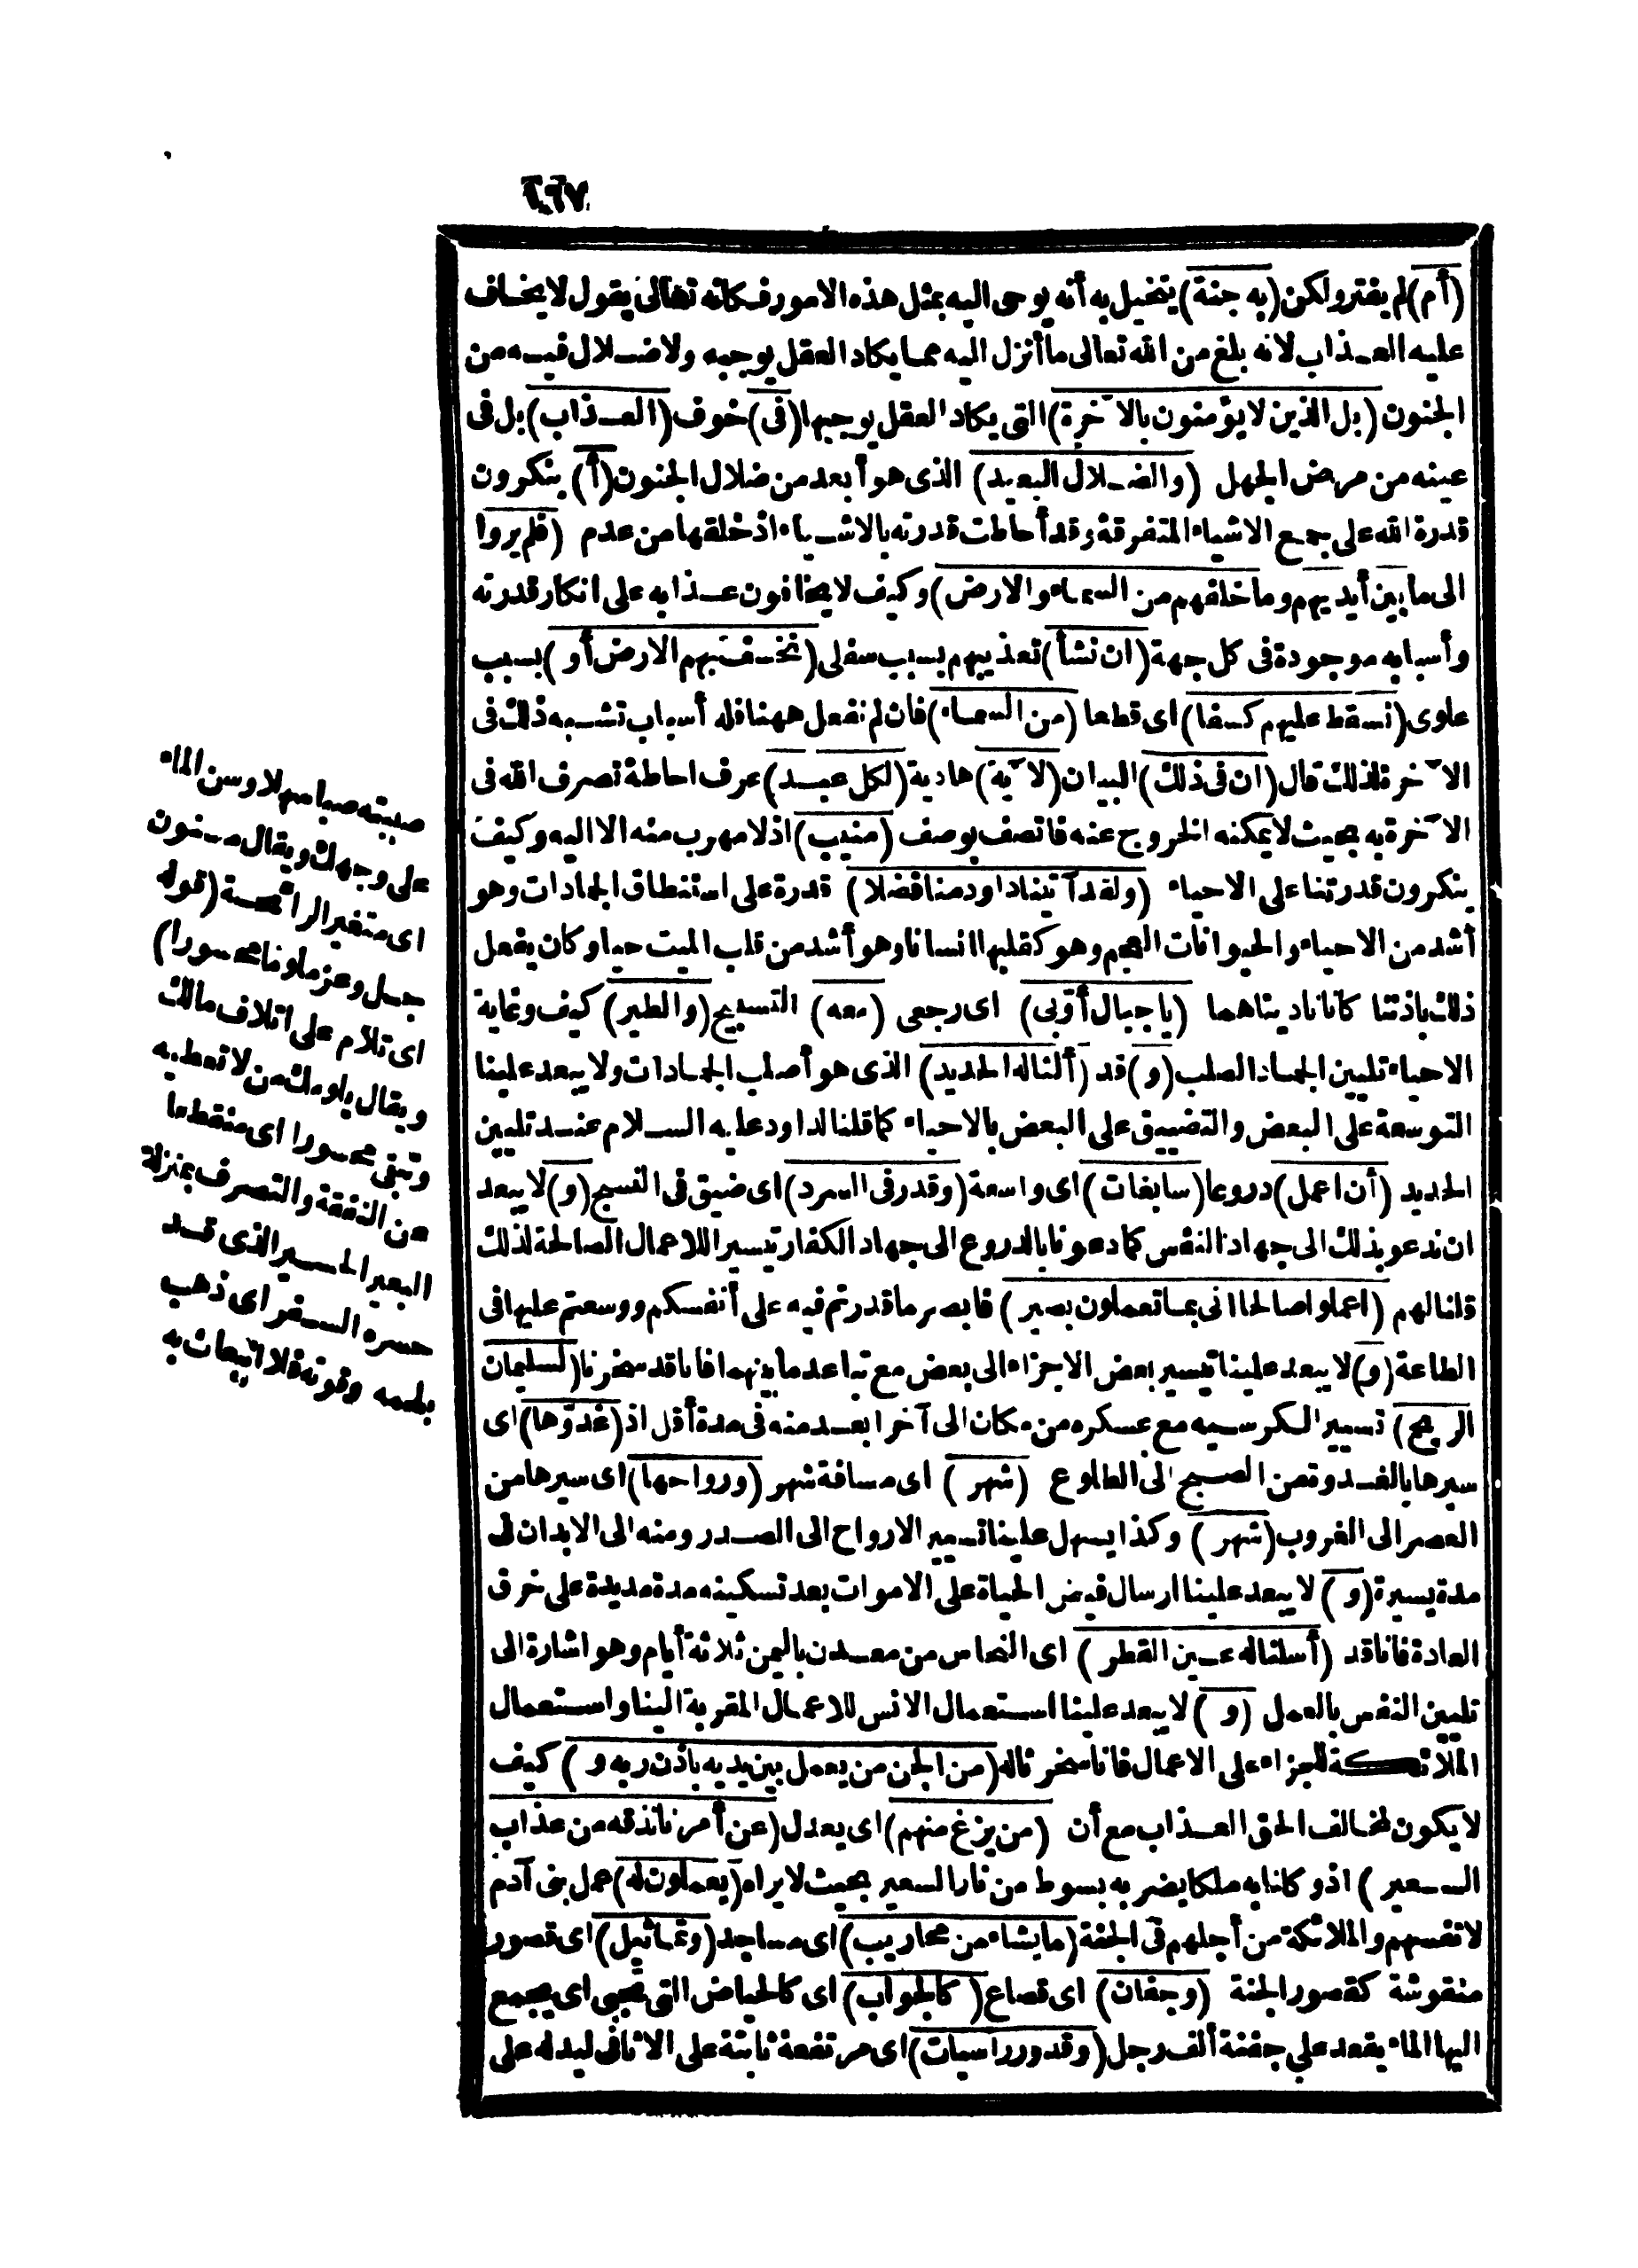 (أم) لم يفتر ولكن (به جنة) يتخيل به أنه يوحى اليه بمثل هذه الامور فكانه تعالى يقول لا يخاف
عليه العذاب لانه بلغ من الله تعالى ما أنزل اليه مما يكاد العقل يوجبه ولا ضلال فيه من
الجنون (بل الذين لا يؤمنون بالآخرة) التى يكاد العقل يوجبها (فى) خوف (العذاب) بل فى
عينه من مرض الجهل (والضلال البعيد) الذى هو أبعد من ضلال الجنون (أ) ينكرون
قدرة الله على جمع الاشياء المتفرقة وقد أحاطت قدرته بالاشياء اذ خلقها من عدم (فلم يروا
الى ما بين أيديهم وما خلفهم من السماء والارض) وكيف لا يخافون عذابه على انكار قدرته
وأسبابه موجودة فى كل جهة (ان نشأ) تعذيبهم بسبب سفلى (نخسف بهم الارض أو) بسبب
علوى (نسقط عليهم كسفا) اى قطعا (من السماء) فان لم نفعل ههنا فله أسباب تشبه ذلك فى
الآخرة لذلك قال (ان فى ذلك) البيان (لآية) هادية (لكل عبد) عرف احاطة تصرف الله فى
الآخرة به بحيث لا يمكنه الخروج عنه فاتصف بوصف (منيب) اذ لا مهرب منه الا اليه وكيف
ينكرون قدرتنا على الاحياء (ولقد آتينا داود منا فضلا) قدرة على استنطاق الجمادات وهو
أشد من الاحياء والحيوانات العجم وهو كقلبها انسانا وهو أشد من قلب الميت حيا وكان يفعل
ذلك باذننا كانا ناديناهما (يا جبال أوّبى) اى رجعى (معه) التسبيح (والطير) كيف وغاية
الاحياء تليين الجماد الصلب (و) قد (ألنا له الحديد) الذى هو أصلب الجمادات ولا يبعد علينا
التوسعة على البعض والتضييق على البعض بالاحياء كما قلنا لداود عليه السلام عند تليين
الحديد (أن اعمل) دروعا (سابغات) اى واسعة (وقدر فى السرد) اى ضيق فى النسج (و) لا يبعد
ان ندعو بذلك الى جهاد النفس كما دعونا بالدروع الى جهاد الكفار تيسيرا للاعمال الصالحة لذلك
قلنا لهم (اعملوا صالحا انى بما تعملون بصير) فابصر ما قدرتم فيه على أنفسكم ووسعتم عليها فى
الطاعة (و) لا يبعد علينا تيسير بعض الاجزاء الى بعض مع تباعد ما بينهما فانا قد سخرنا (لسليمان
الريح) تسيير الكرسيه مع عسكره من مكان الى آخر ابعد منه فى مدة أقل اذ (غدوّها) اى
سيرها بالغدوة من الصبح الى الطلوع (شهر) اى مسافة شهر (ورواحها) اى سيرها من
العصر الى الغروب (شهر) وكذا يسهل علينا تسيير الارواح الى الصدر ومنه الى الابدان فى
مدة يسيرة (و) لا يبعد علينا ارسال فيض الحياة على الاموات بعد تسكينه مدة مديدة على خرق
العادة فانا قد (أسلنا له عين القطر) اى النحاس من معدن باليمن ثلاثة أيام وهو اشارة الى
تليين النفس بالعمل (و) لا يبعد علينا استعمال الانس للاعمال المقربة الينا واستعمال
الملائكة للجزاء على الاعمال فانا سخرنا له (من الجن من يعمل بين يديه باذن ربه و) كيف
لا يكون لمخالف الحق العذاب مع أن (من يزغ منهم) اى يعدل (عن أمرنا نذقه من عذاب
السعير) اذ وكلنا به ملكا يضربه بسوط من نار السعير بحيث لا يراه (يعملون له) عمل بنى آدم
لانفسهم والملائكة من أجلهم فى الجنة (ما يشاء من محاريب) اى مساجد (وتماثيل) اى قصور
منقوشة كقصور الجنة (وجفان) اى قصاع (كالجواب) اى كالحياض التى يجبى اى يجمع
اليها الماء يقعد على جفنة ألف رجل (وقدور راسيات) اى مرتفعة ثابتة على الاثافى ليدله على
صببته صبا سهلا وسن الماء
على وجهك ويقال مسنون
اى متغير الرائحة (قوله
جل وعز ملوما محسورا)
اى تلام على اتلاف مالك
ويقال يلومك من لا تعطيه
وتبقى محسورا اى منقطعا
عن النفقة والتصرف بمنزلة
البعير الحسير الذى قد
حسره السفر اى ذهب
بلحمه وقوته فلا انبعاث به